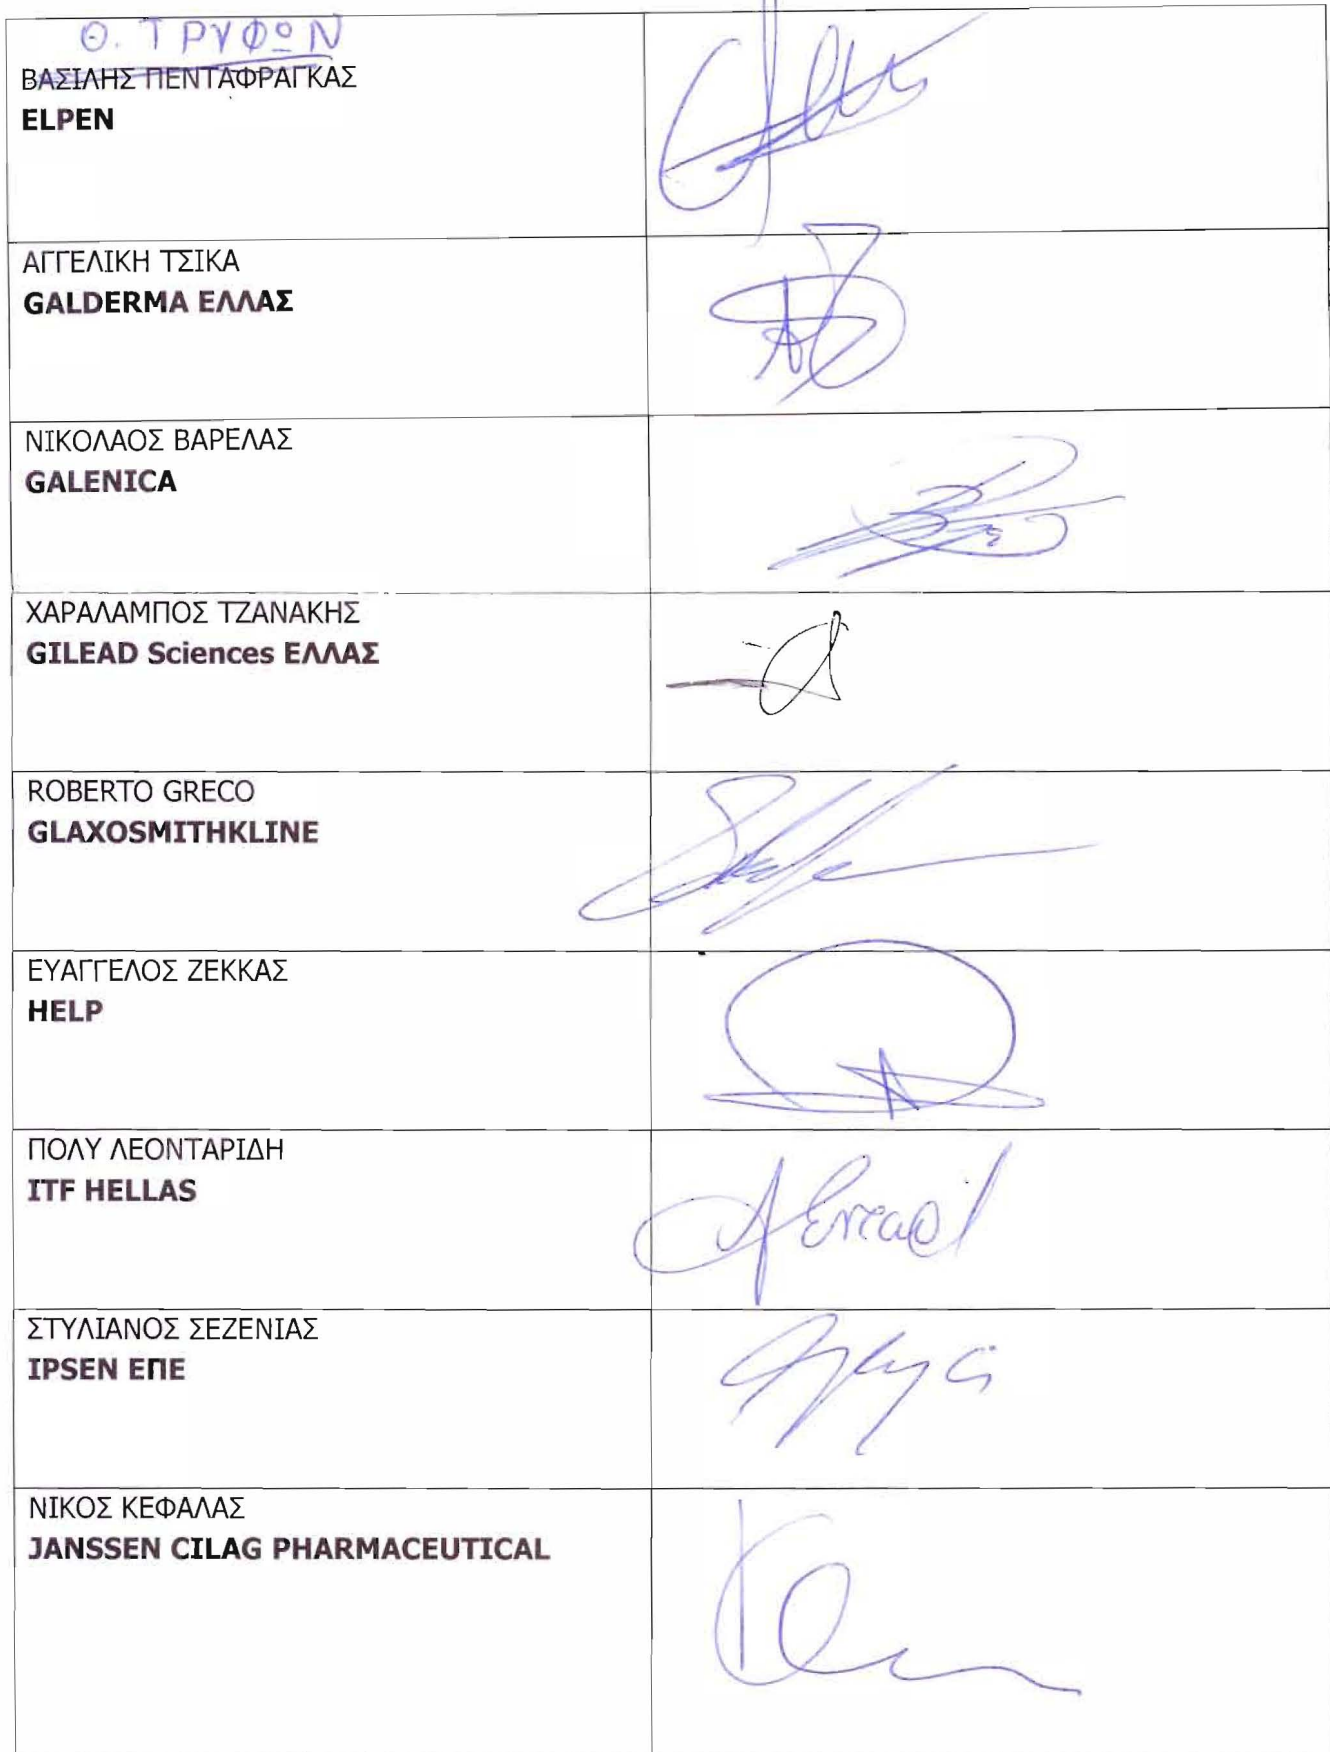 Θ. ΤΡΥΦΩΝ
ΒΑΣΙΛΗΣ ΠΕΝΤΑΦΡΑΓΚΑΣ
ELPEN
ΑΓΓΕΛΙΚΗ ΤΣΙΚΑ
GALDERMA ΕΛΛΑΣ
ΝΙΚΟΛΑΟΣ ΒΑΡΕΛΑΣ
GALENICA
ΧΑΡΑΛΑΜΠΟΣ ΤΖΑΝΑΚΗΣ
GILEAD Sciences ΕΛΛΑΣ
ROBERTO GRECO
GLAXOSMITHKLINE
ΕΥΑΓΓΕΛΟΣ ΖΕΚΚΑΣ
HELP
ΠΟΛΥ ΛΕΟΝΤΑΡΙΔΗ
ITF HELLAS
ΣΤΥΛΙΑΝΟΣ ΣΕΖΕΝΙΑΣ
IPSEN ΕΠΕ
ΝΙΚΟΣ ΚΕΦΑΛΑΣ
JANSSEN CILAG PHARMACEUTICAL